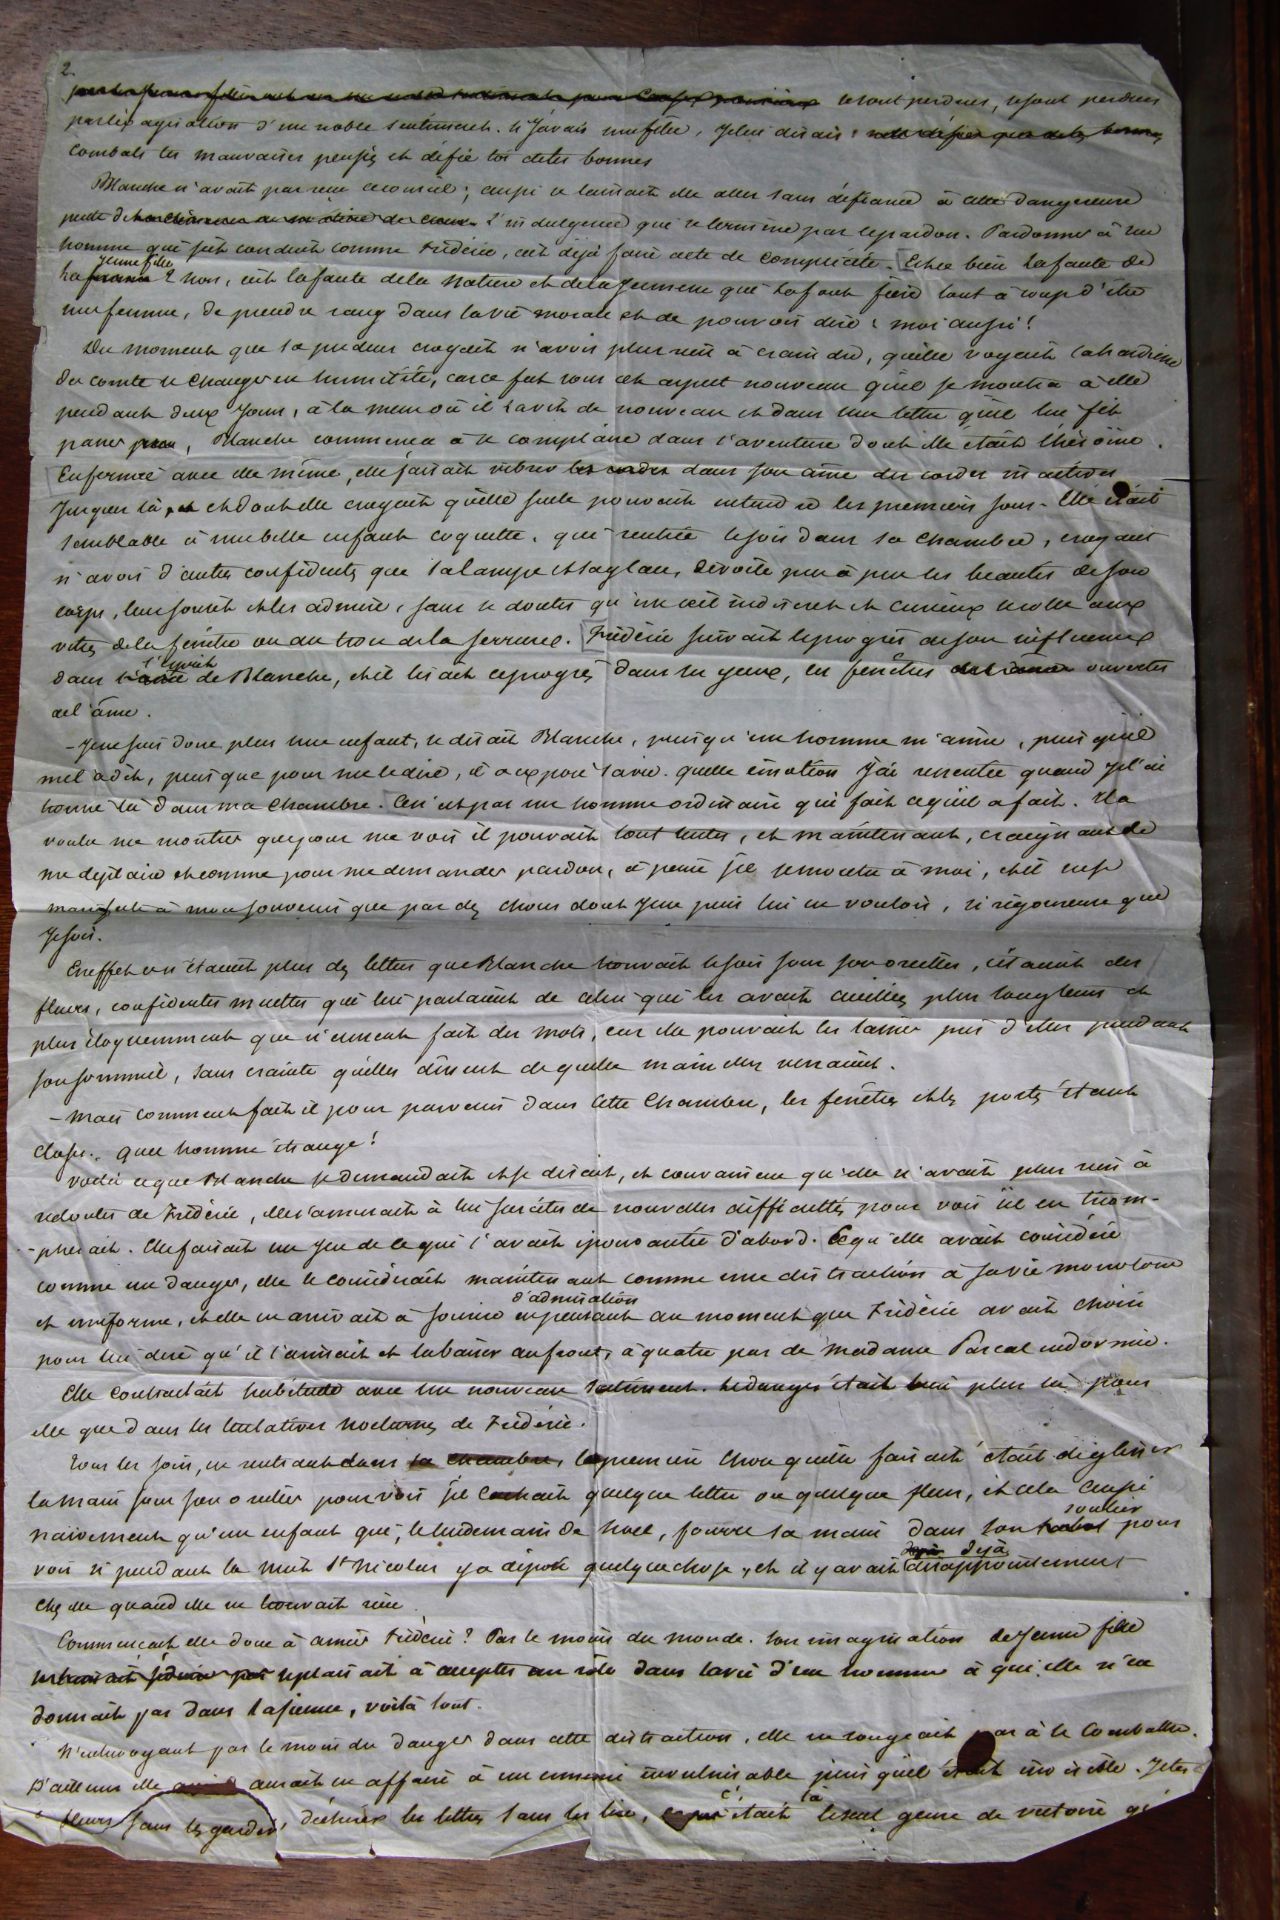 2.
se sont perdues, se sont perdues
par l'exagération d'un noble sentiment. Si j'avais une fille, je lui dirais :
combats tes mauvaises pensées et défie toi de tes bonnes
Blanche n'avait pas reçu ce conseil ; aussi se laissait elle aller sans défiance à cette dangereuse
pente de l'indulgence qui se termine par le pardon. Pardonner à un
homme qui s'est conduit comme Frédéric, c'est déjà faire acte de complicité. Est-ce bien la faute de
jeune fille
la ? Non, c'est la faute de la nature et de la jeunesse qui la font fière tout à coup d'être
une femme, de prendre rang dans la vie morale et de pouvoir dire : moi aussi !
Du moment que sa pudeur croyait n'avoir plus rien à craindre, qu'elle voyait la hardiesse
du comte se changer en humilité, car ce fut sous cet aspect nouveau qu'il se montra à elle
pendant deux jours, à la messe où il la vit de nouveau et dans une lettre qu'il lui fit
passer, Blanche commença à se complaire dans l'aventure dont elle était l'héroïne.
Enfermée avec elle même, elle faisait vibrer dans son âme des cordes inactives
jusque là, et dont elle croyait qu'elle seule pouvait entendre les premiers sons. Elle était
semblable à une belle enfant coquette, qui rentrée le soir dans sa chambre, croyant
n'avoir d'autres confidents que sa lampe et sa glace, dévoile peu à peu les beautés de son
corps, leur sourit et les admire, sans se douter qu'un œil indiscret et curieux est collé aux
vitres de la fenêtre ou au trou de la serrure. Frédéric suivait les progrès de son influence
l'esprit
dans de Blanche, et il lisait ce progrès dans ses yeux, ces fenêtres ouvertes
de l'âme.
– Je ne suis donc plus une enfant, se disait Blanche, puisqu'un homme m'aime, puisqu'il
me l'a dit, puisque pour me le dire, il a exposé sa vie. Quelle émotion j'ai ressentie quand je l'ai
trouvé là dans ma chambre. Ce n'est pas un homme ordinaire qui fait ce qu'il a fait. Il a
voulu me montrer que pour me voir il pouvait tout tenter, et maintenant, craignant de
me déplaire et comme pour me demander pardon, à peine s'il se montre à moi, et il ne se
manifeste à mon souvenir que par des choses dont je ne puis lui en vouloir, si rigoureuse que
je sois.
En effet ce n'étaient plus des lettres que Blanche trouvait le soir sous son oreiller, c'étaient des
fleurs, confidentes muettes qui lui parlaient de celui qui les avait cueillies plus longtemps et
plus éloquemment que n'eussent fait des mots, car elle pouvait les laisser près d'elle pendant
son sommeil, sans crainte qu'elles disent de quelle main elles venaient.
– Mais comment fait il pour parvenir dans cette chambre, les fenêtres et les portes étant
closes. Quel homme étrange !
Voilà ce que Blanche se demandait et se disait, et convaincue qu'elle n'avait plus rien à
redouter de Frédéric, elle s'amusait à lui susciter de nouvelles difficultés pour voir s'il en triom-
-pherait. Elle faisait un jeu de ce qui l'avait épouvantée d'abord. Ce qu'elle avait considéré
comme un danger, elle le considérait maintenant comme une distraction à sa vie monotone
d'admiration
et uniforme, et elle en arrivait à sourire en pensant au moment que Frédéric avait choisi
pour lui dire qu'il l'aimait et la baiser au front, à quatre pas de madame Pascal endormie.
Elle contractait habitude avec un nouveau sentiment. Le danger était bien plus là pour
elle que dans les tentatives nocturnes de Frédéric.
Tous les soirs, en rentrant, la première chose qu'elle faisait était de glisser
la main sous son oreiller pour voir s'il cachait quelque lettre ou quelque fleur, et cela aussi
soulier
naïvement qu'un enfant qui, le lendemain de Noël, fourre sa main dans son pour
déjà
voir si pendant la nuit St Nicolas y a déposé quelque chose, et il y avait désappointement
chez elle quand elle ne trouvait rien.
Commençait elle donc à aimer Frédéric ? Pas le moins du monde. Son imagination de jeune fille
se plaisait à accepter un rôle dans la vie d'un homme à qui elle n'en
donnait pas dans la sienne, voilà tout.
N'entrevoyant pas le moindre danger dans cette distraction, elle ne songeait pas à le combattre.
D'ailleurs elle aurait eu affaire à un ennemi invulnérable puisqu'il était invisible. Jeter
c' la
fleurs sans les garder, déchirer les lettres sans les lire, était le seul genre de victoire